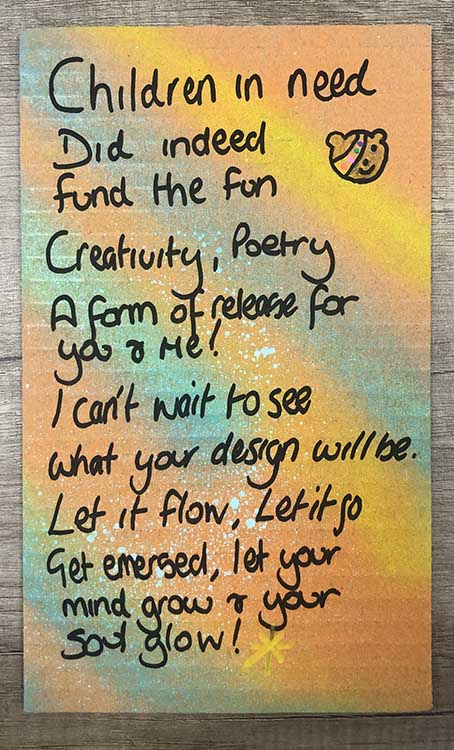 Children in need
Did indeed
fund the fun
Creativity, Poetry
A form of release for
you & Me!
I can't wait to see
what your design will be.
Let it flow, Let it go
Get emersed, let your
mind grow & your
soul glow!